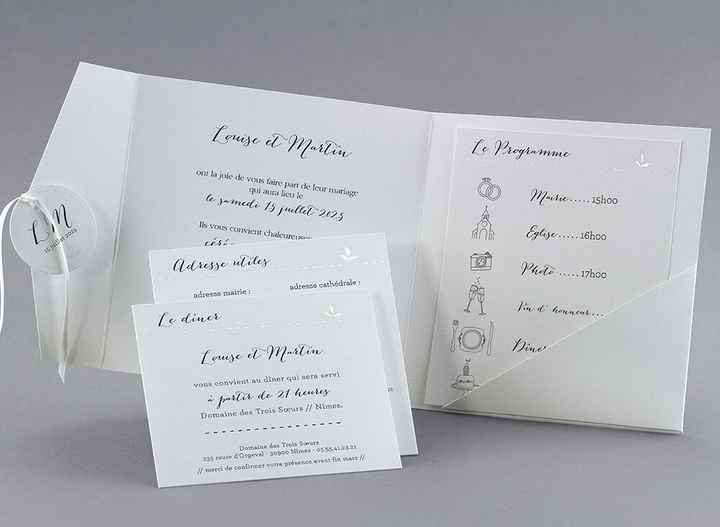 L M
15 juillet 2025
Louise et Martin
ont la joie de vous faire part de leur mariage
qui aura lieu le
le samedi 15 juillet 2025
Ils vous convient chaleureuse
céré
Le Programme
Mairie.....15h00
Eglise.....16h00
Photo.....17h00
Vin d' honneur...
Dîne
Adresse utiles
adresse mairie :
adresse cathédrale :
Le dîner
Louise et Martin
vous convient au dîner qui sera servi
à partir de 21 heures
Domaine des Trois Sœurs // Nîmes.
Domaine des Trois Sœurs
235 route d'Orgeval - 30900 Nîmes - 05.55.41.23.21
// merci de confirmer votre présence avant fin mars //